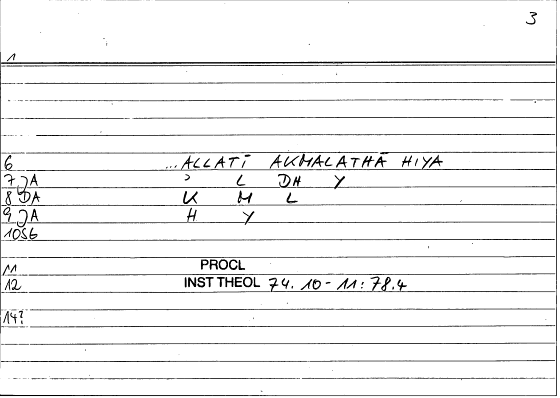 3
1
6 ...ALLATĪ AKMALATHĀ HIYA
7 JA ʾ L DH Y
8 DA K M L
9 JA H Y
10S6
11 PROCL
12 INST THEOL 74.10-11:78.4
14?